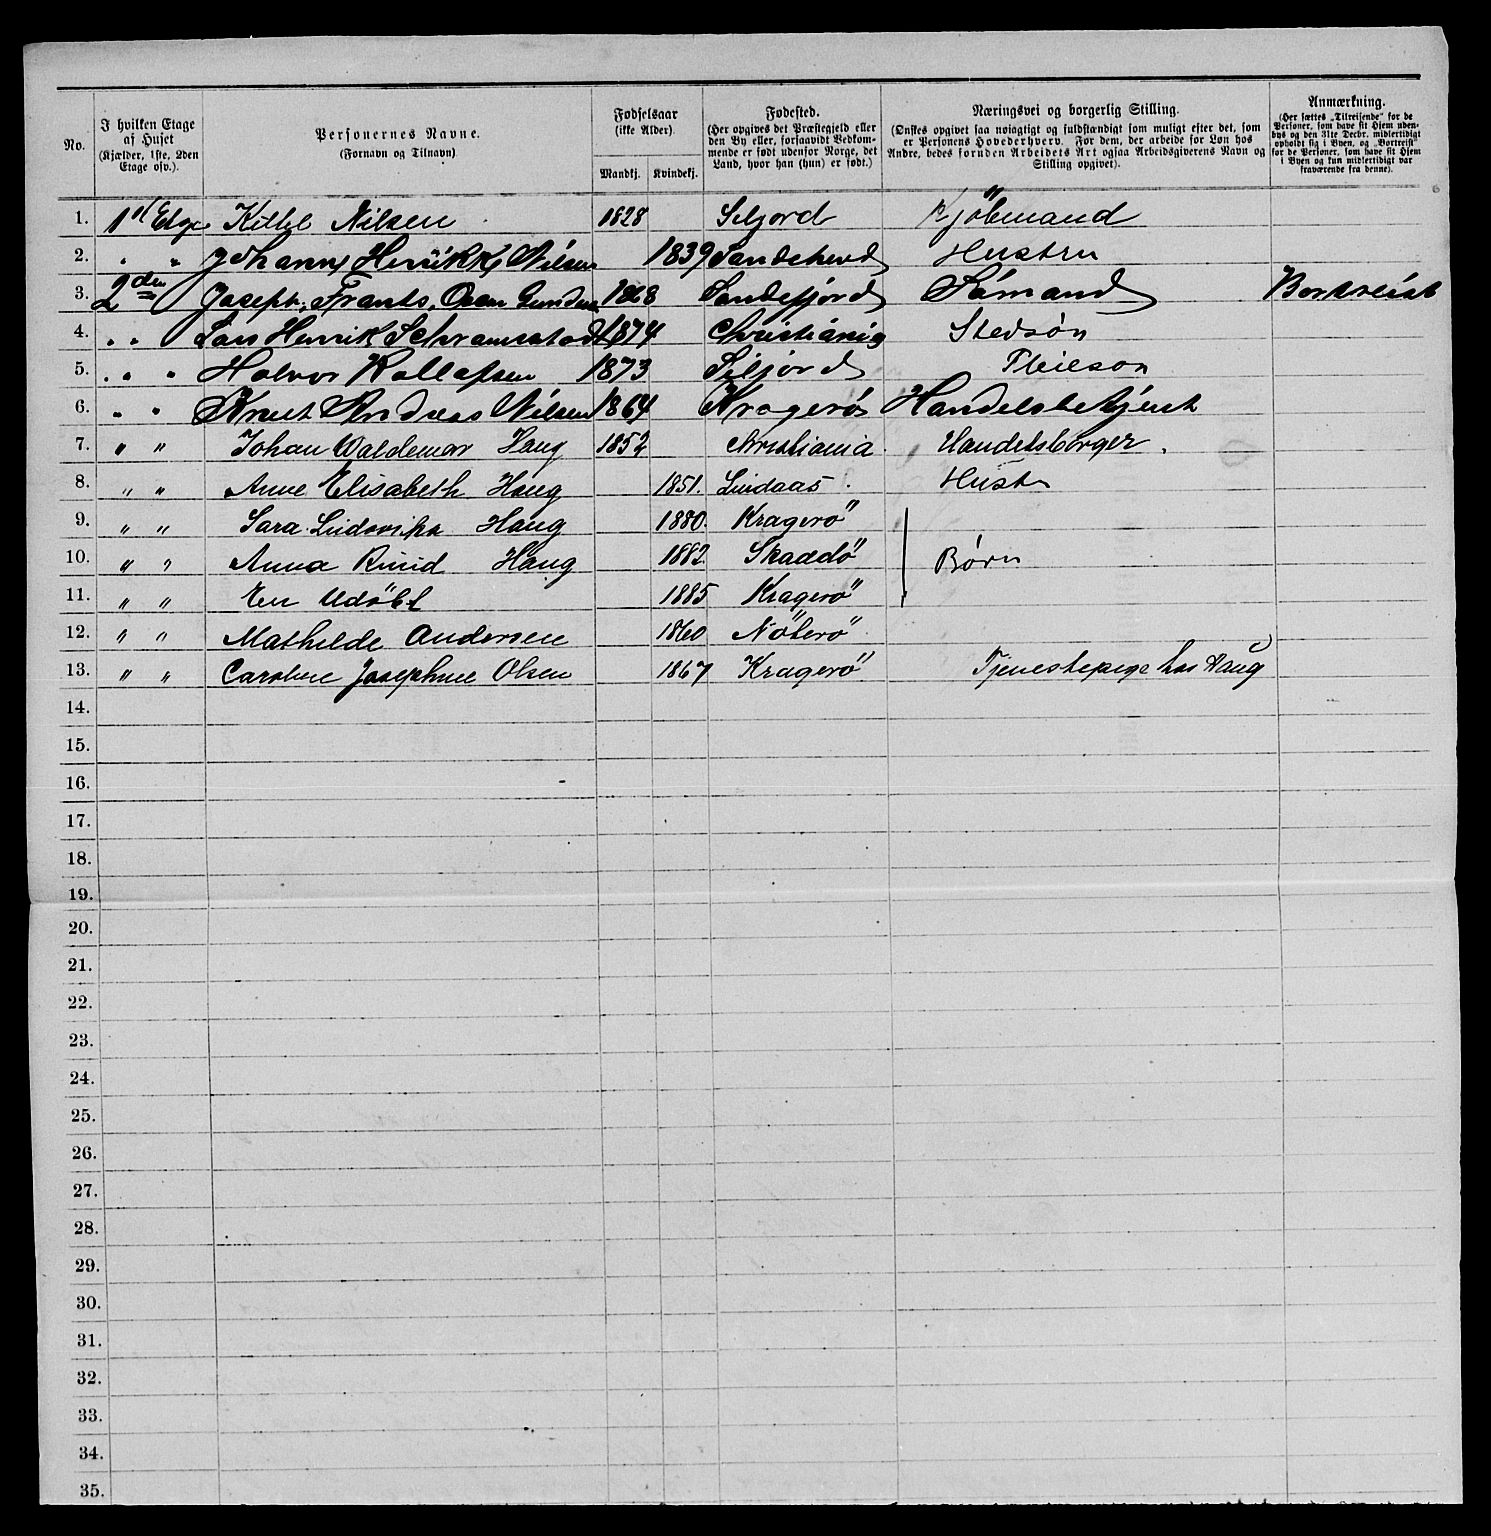 No. | I hvilken Etage af Huset (Kjælder, 1ste, 2den Etage osv.). | Personernes Navne. (Fornavn og Tilnavn) | Fødselsaar (ikke Alder). Mandkj. Kvindekj. | Fødested. (Her opgives det Præstegjeld eller den By eller, forsaavidt Vedkommende er født udenfor Norge, det Land, hvor han (hun) er født.) | Næringsvei og borgerlig Stilling. (Ønskes opgivet saa nøiagtigt og fuldstændigt som muligt efter det, som er Personens Hovederhverv. For dem, der arbeide for Løn hos Andre, bedes foruden Arbeidets Art ogsaa Arbeidsgiverens Navn og Stilling opgivet). | Anmærkning. (Her sættes „Tilreisende“ for de Personer, som have sit Hjem udenbys og den 31te Decbr. midlertidigt opholdt sig i Byen, og „Bortreist“ for de Personer, som have sit Hjem i Byen og kun midlertidigt var fraværende fra denne).
1. Kittel Nilsen 1828 Seljord Kjöbmand
2. " " Johanne Henrikke Nilsen 1839 Hustru
3. 2den Joseph Frants 1868 Sandefjord Sömand Bortreist
4. " " Lars Henrik Schramstad 1874 Christiania Stedsön
5. " " Halvor Rollefsen 1873 Siljord Pleieson
6. " " Knut Andreas Nilsen 1864 Kragerö Handelsbetjent
7. " " Johan Waldemar Haug 1852 Christiania Handelsborger.
8. " " Anne Elisabeth Haug 1851. Lindaas Hustr
9. " " Sara Ludovika Haug 1880. Kragerö
10. " " Anna Ruud Haug 1882 Skaadö Børn
11. " " En Udöbt 1885 Kragerö
12. " " Mathilde Andersen 1860 Nöterö
13. " " Caroline Josephine Olsen 1867 Kragerö Tjenestepige hos Haug
14.
15.
16.
17.
18.
19.
20.
21.
22.
23.
24.
25.
26.
27.
28.
29.
30.
31.
32.
33.
34.
35.